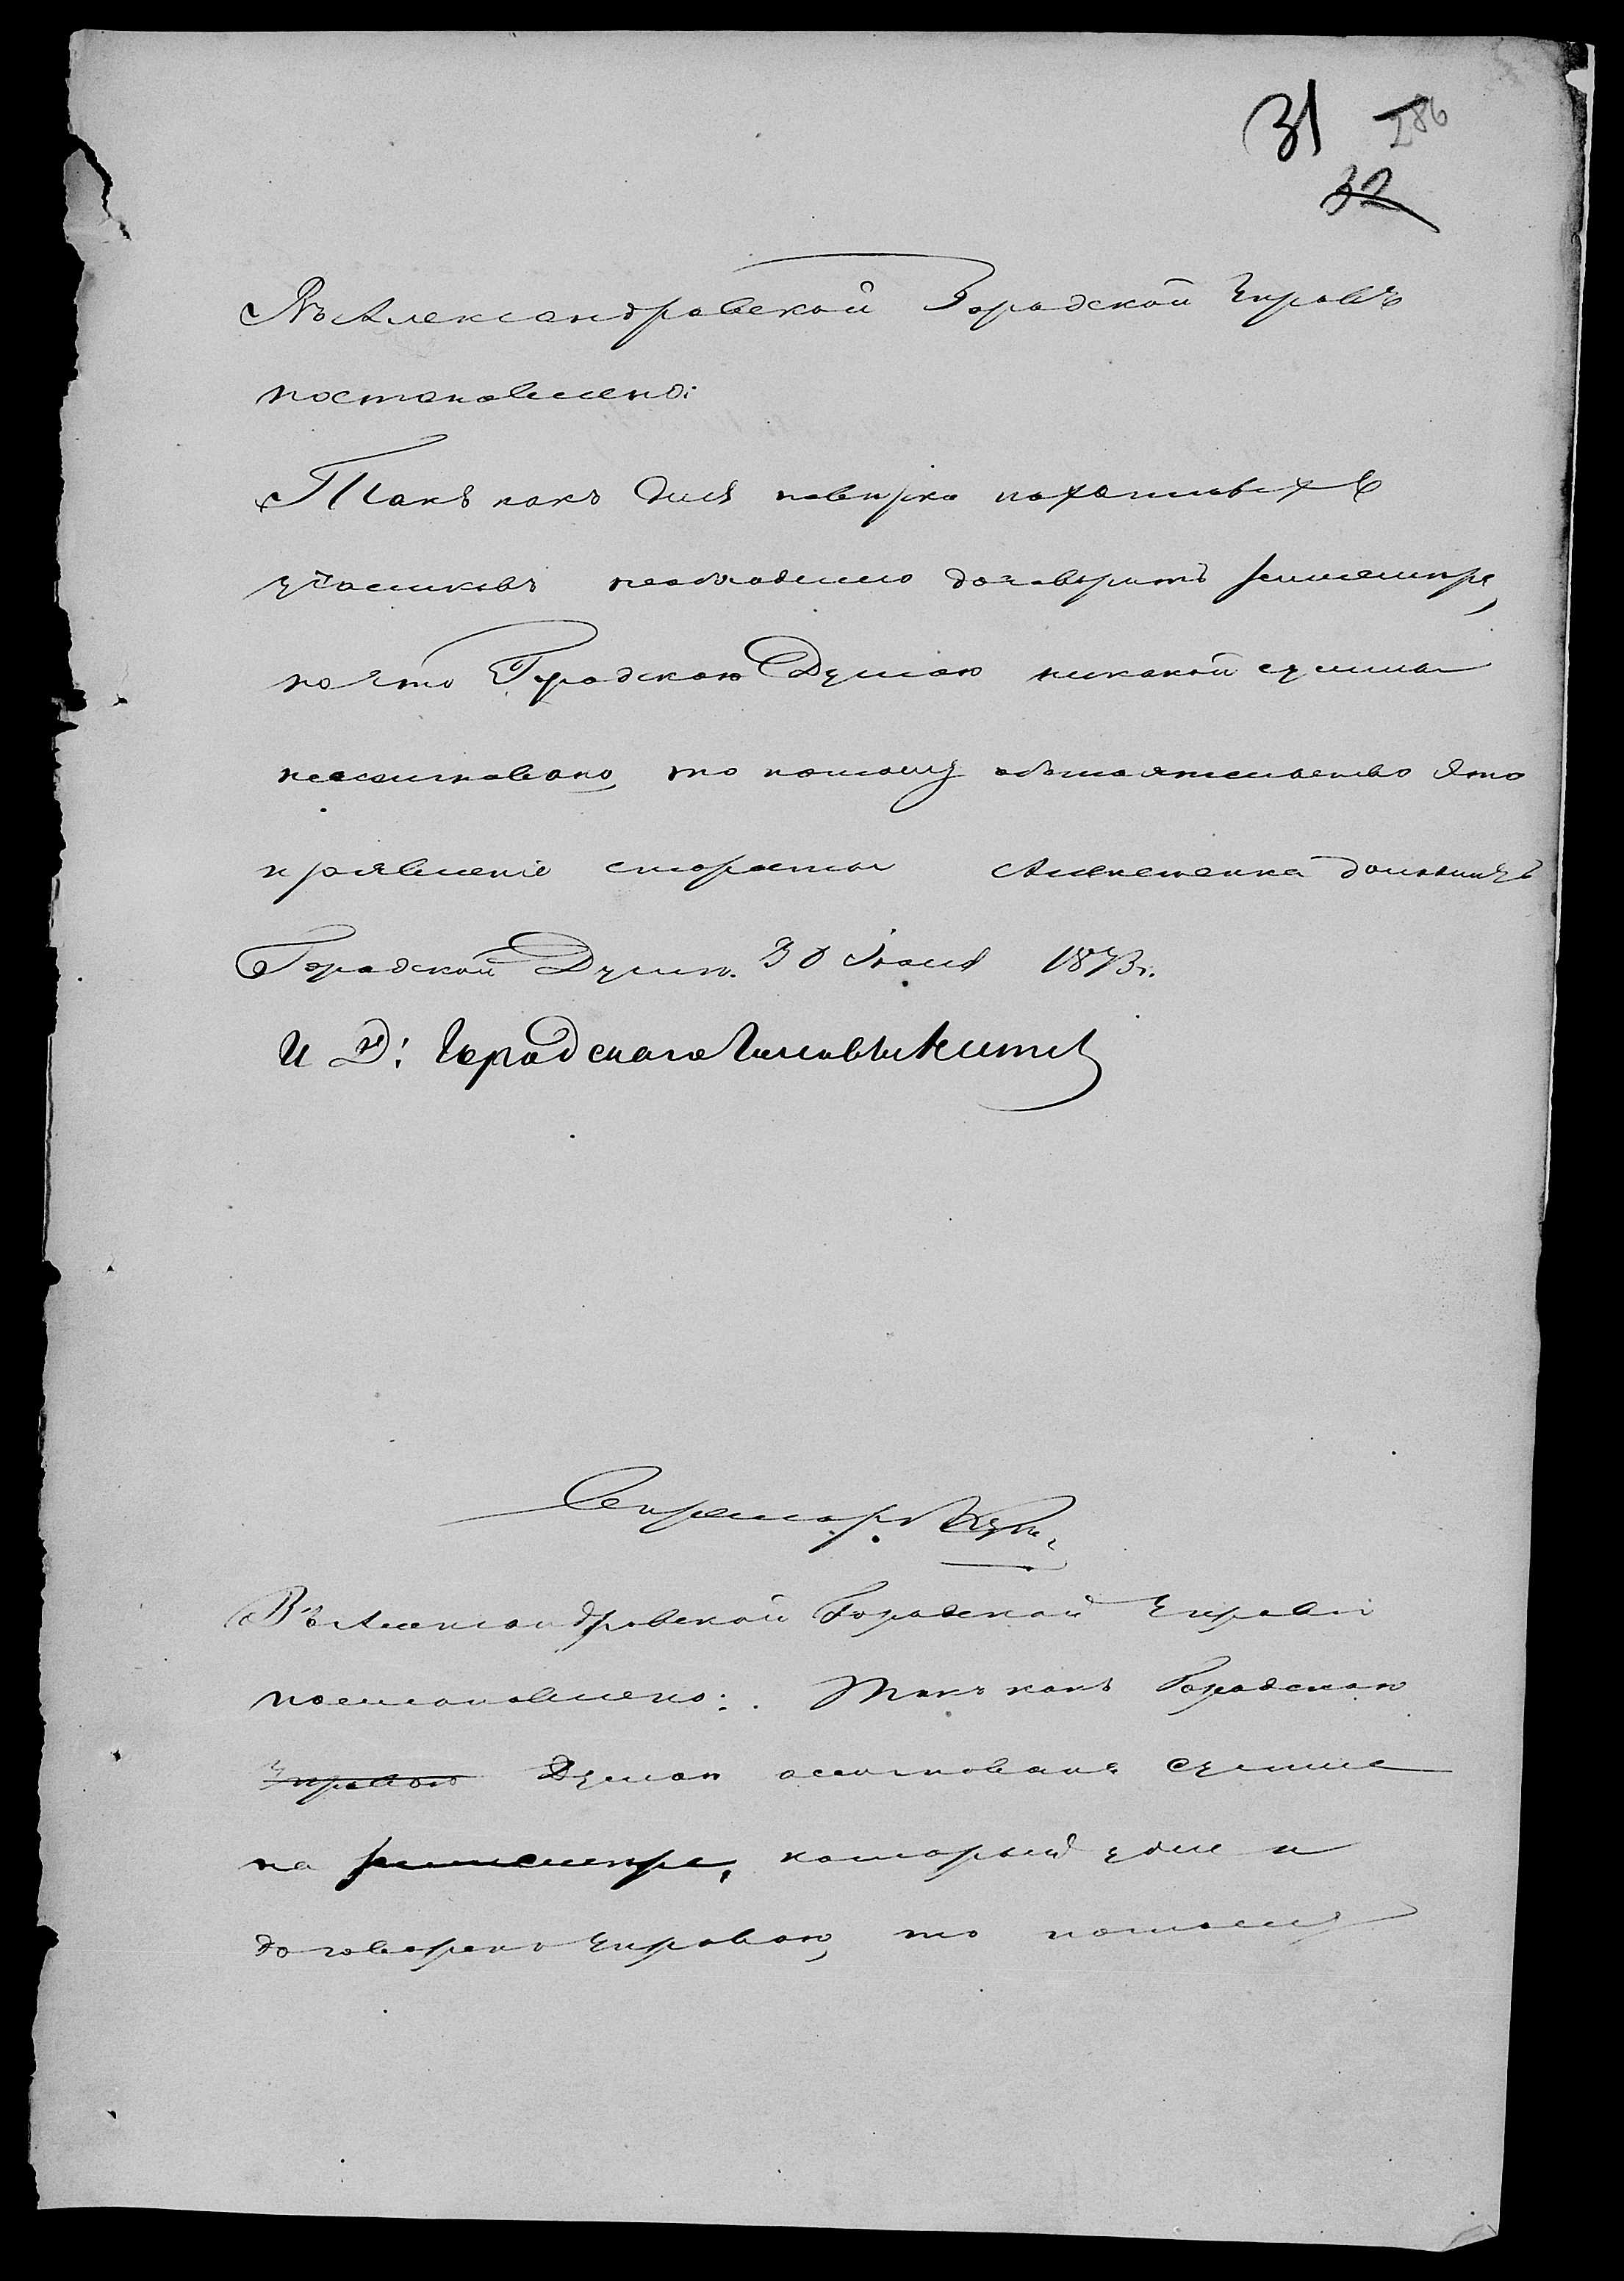 31 286
32
Въ Александровской Городской Управѣ
постановлено:
Такъ какъ для повѣрки пахатныхъ
участковъ необходимо договорить землемѣра,
на что Городскою Думою никакой суммы
неассигновано, то потому обстоятельство это
и заявленіе старосты доложить
Городской Думѣ. 30 Іюля 1873 г.
И Д: Городскаго Головы
Секретарь
Въ Александровской Городской Управѣ
постановлено: Такъ какъ Городскою
Управою Думою ассигнована сумма
на землемѣра, который уже и
договоренъ Управою, то потому